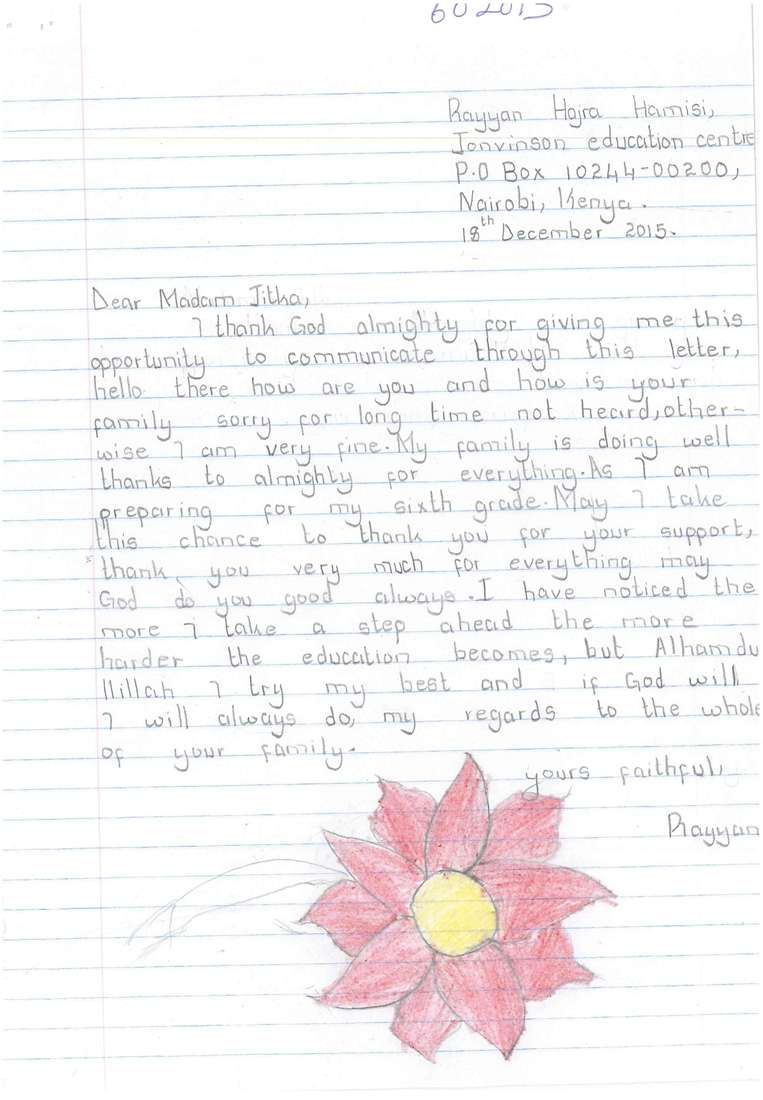 Rayyan Hajra Hamisi,
Jonvinson education centre
P.O Box 10244-00200,
Nairobi, Kenya.
18th December 2015.
Dear Madam Jitka,
I thank God almighty for giving me this
opportunity to communicate through this letter,
hello there how are you and how is your
family sorry for long time not heard, other-
wise I am very fine. My family is doing well
thanks to almighty for everything. As I am
preparing for my sixth grade. May I take
this chance to thank you for your support,
thank you very much for everything may
God do you good always. I have noticed the
more I take a step ahead the more
harder the education becomes, but Alhamdu
llillah I try my best and if God will
I will always do, my regards to the whole
of your family.
yours faithful,
Rayyan